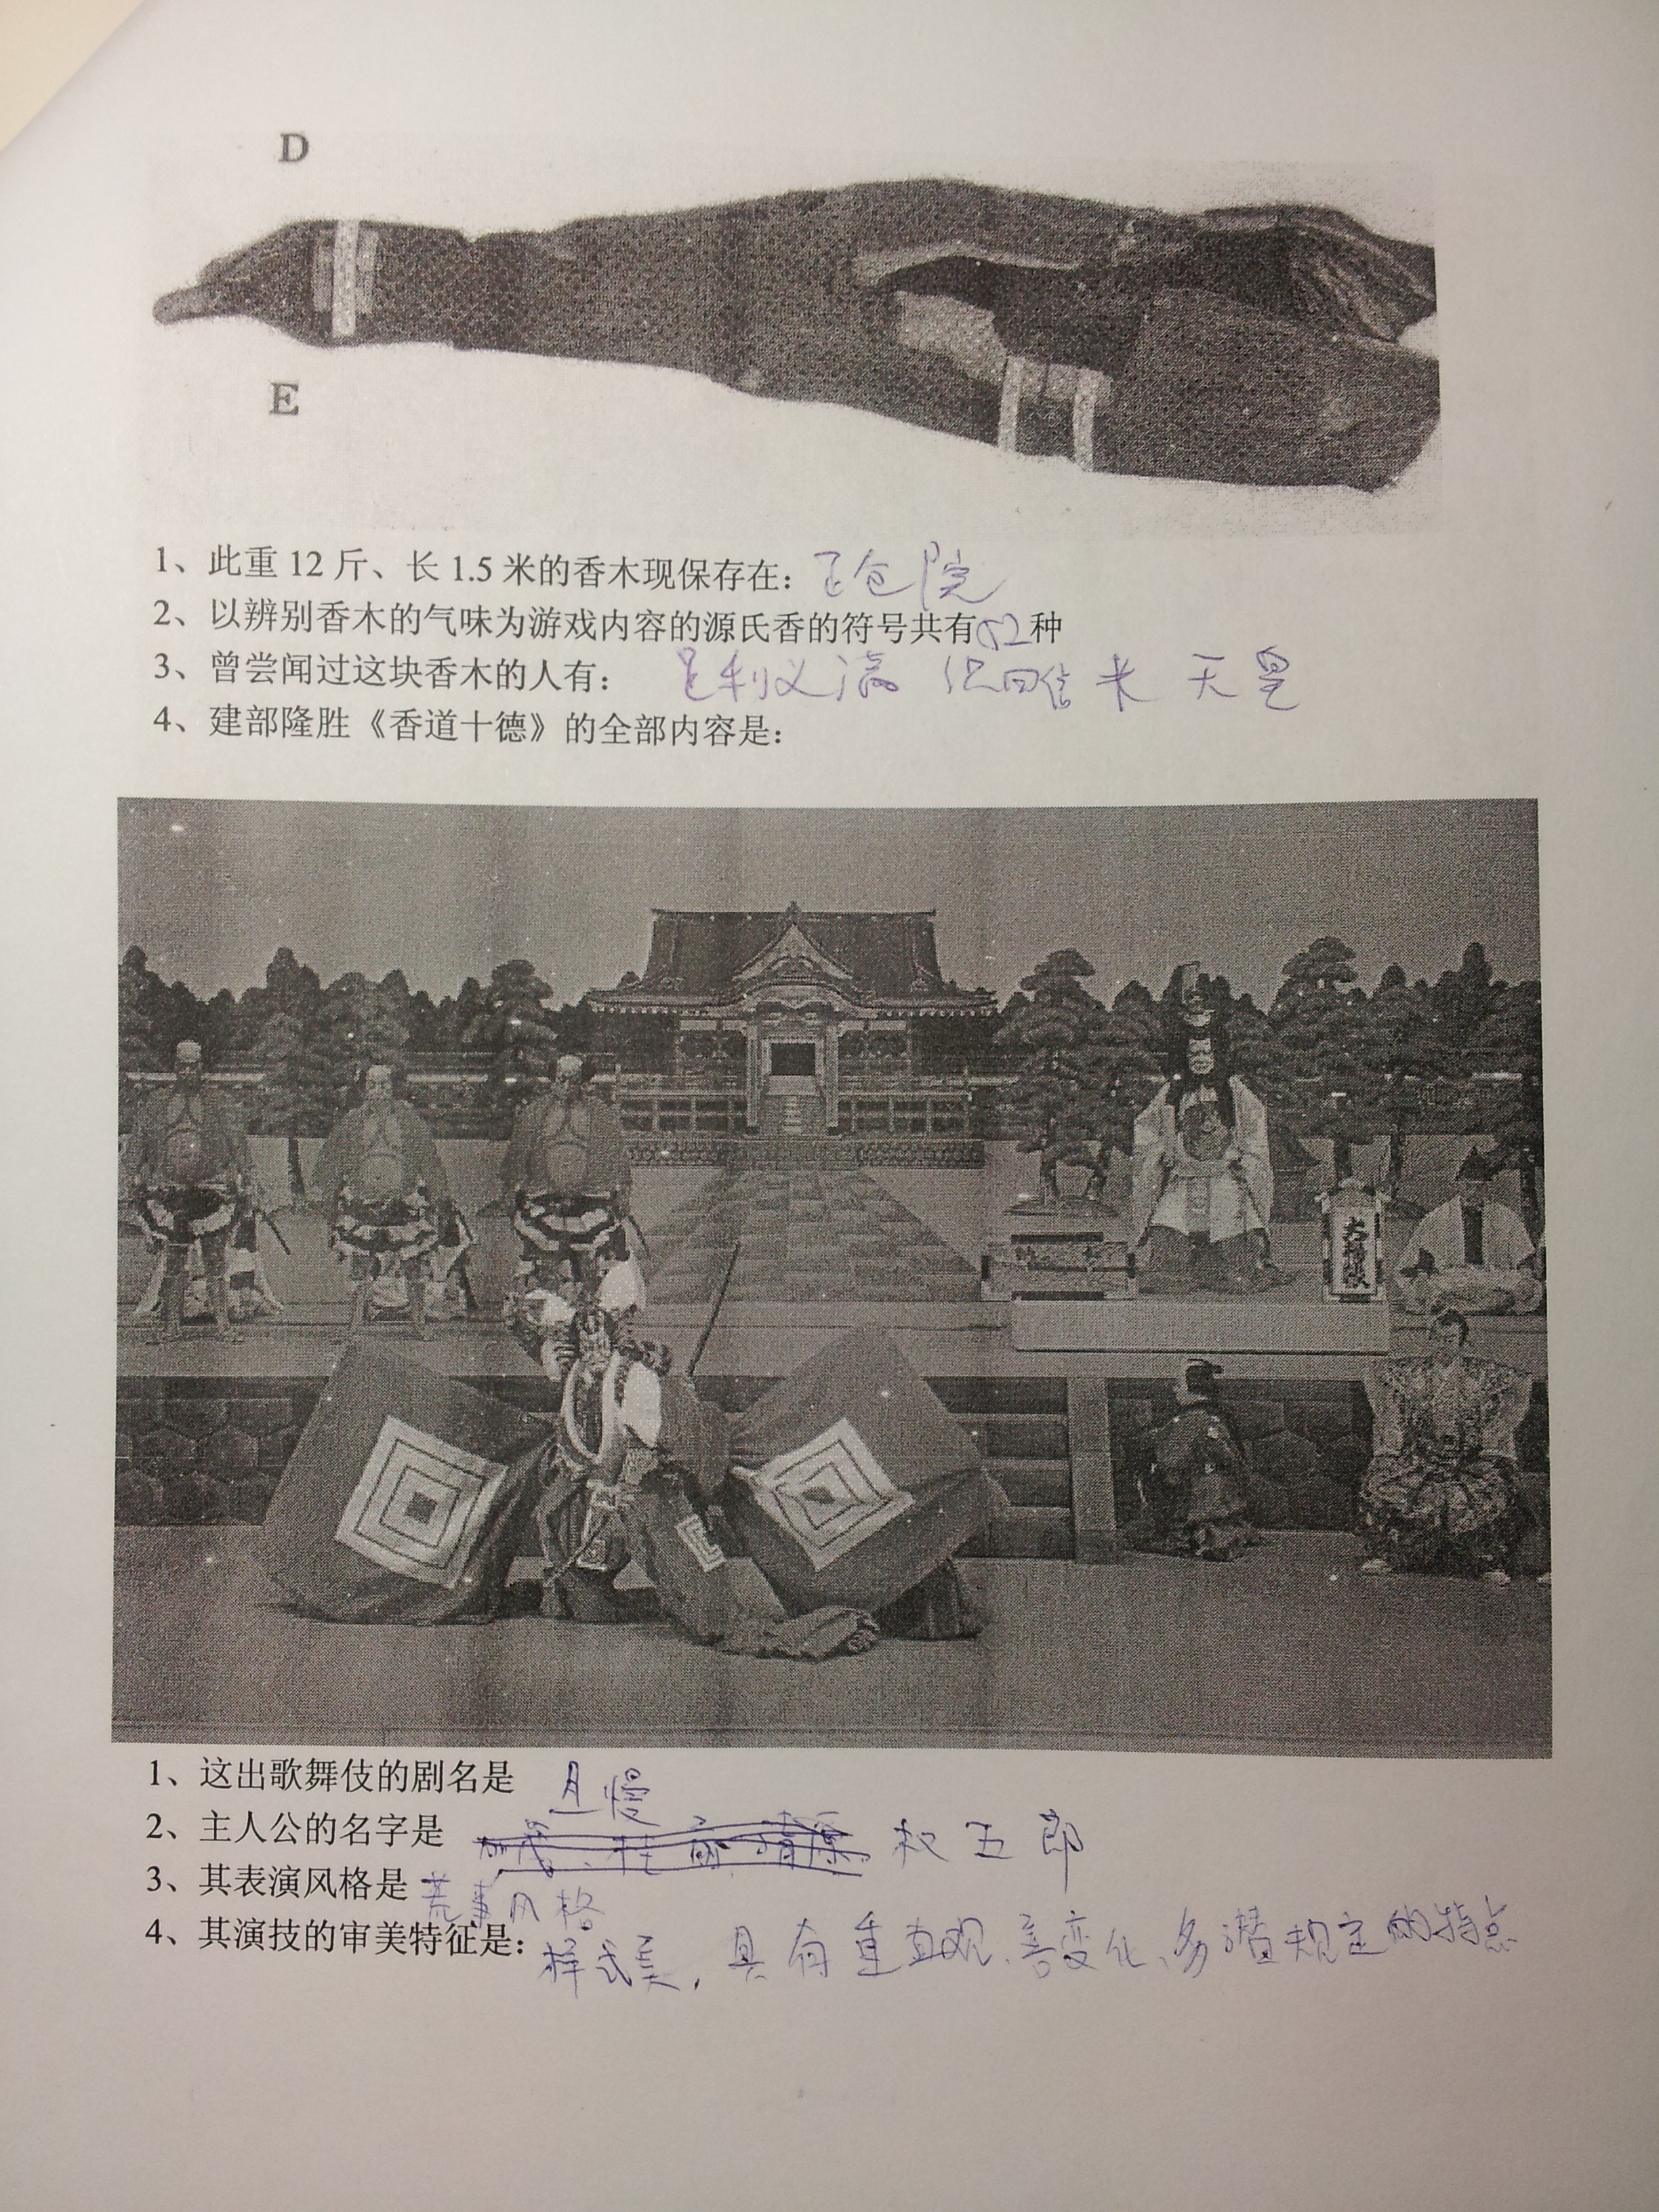 D
E
1、此重 12 斤、长 1.5 米的香木现保存在：正仓院
2、以辨别香木的气味为游戏内容的源氏香的符号共有52种
3、曾尝闻过这块香木的人有： 足利义满 织田信 米 天皇
4、建部隆胜《香道十德》的全部内容是：
大福帳
1、这出歌舞伎的剧名是 且慢
2、主人公的名字是 权五郎
3、其表演风格是 荒事风格
4、其演技的审美特征是：样式美，具有重直观、善变化、多潜规定的特点